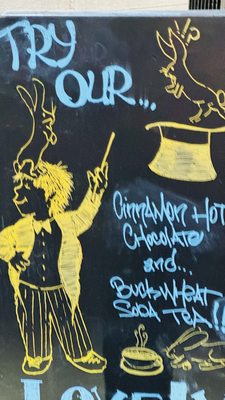 TRY
OUR...
Cinnamon Hot
Chocolate
and...
Buckwheat
Soda Tea!!